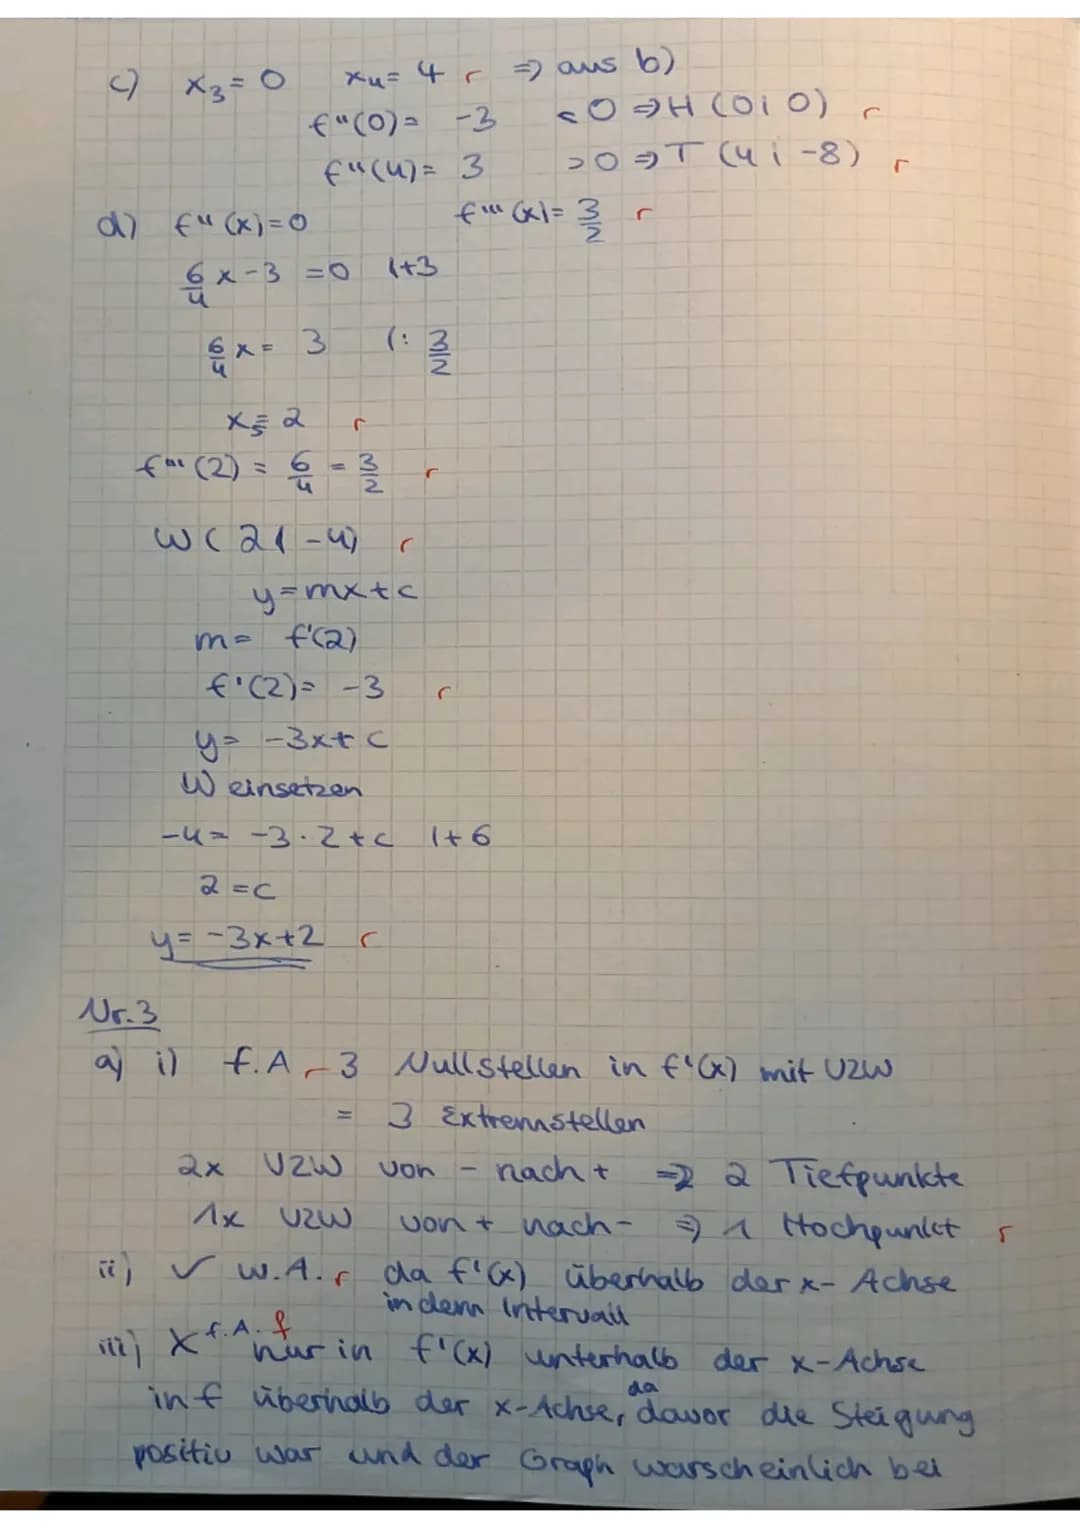 c) x₃=0 x₄=4 r ⇒ aus b)
f''(0)= -3 <0 ⇒ H (0; 0) r
f''(4)= 3 >0 ⇒ T (4; -8) r
d) f''(x)=0 f'''(x)= 3/2 r
6/4 x-3 =0 |+3
6/4 x = 3 |: 3/2
x₅= 2 r
f'''(2) = 6/4 = 3/2 r
W(2|-4) r
y=mx+c
m= f'(2)
f'(2)= -3 r
y= -3x+c
W einsetzen
-4= -3·2+c |+6
2=c
y= -3x+2 r
Nr.3
a) i) f.A r 3 Nullstellen in f'(x) mit VZW
= 3 Extremstellen
2x VZW von - nach + ⇒ 2 Tiefpunkte
1x VZW von + nach - ⇒ 1 Hochpunkt r
ii) ✓ w.A. r da f'(x) überhalb der x-Achse
in dem Intervall
iii) X f.A. f nur in f'(x) unterhalb der x-Achse
in f überhalb der x-Achse, da davor die Steigung
positiv war und der Graph warscheinlich bei